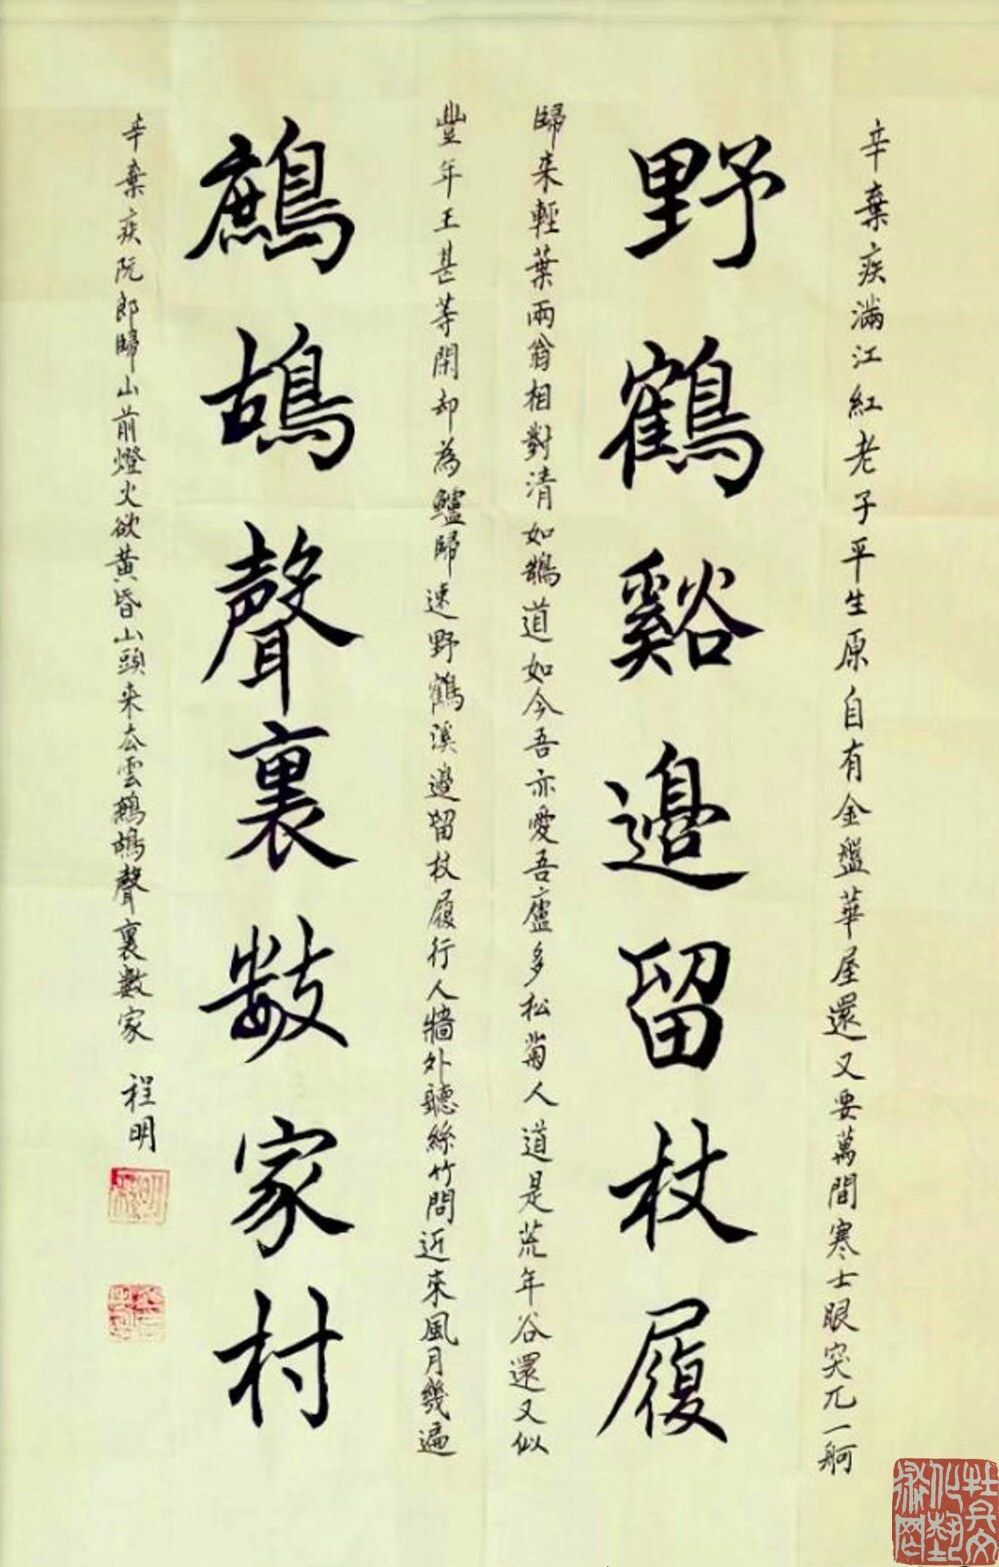 辛棄疾滿江紅老子平生原自有金盤華屋還又要萬間寒士眼突兀一舸
野鶴谿邊留杖履
歸来輕葉兩翁相對清如鵠道如今吾亦愛吾廬多松菊人道是荒年谷還又似
豐年玉甚等閑却為鱸歸速野鶴溪邊留杖履行人牆外聽絲竹問近來風月幾遍
鷓鴣聲裏數家村
辛棄疾阮郎歸山前燈火欲黃昏山頭来去雲鷓鴣聲裏數家
程明